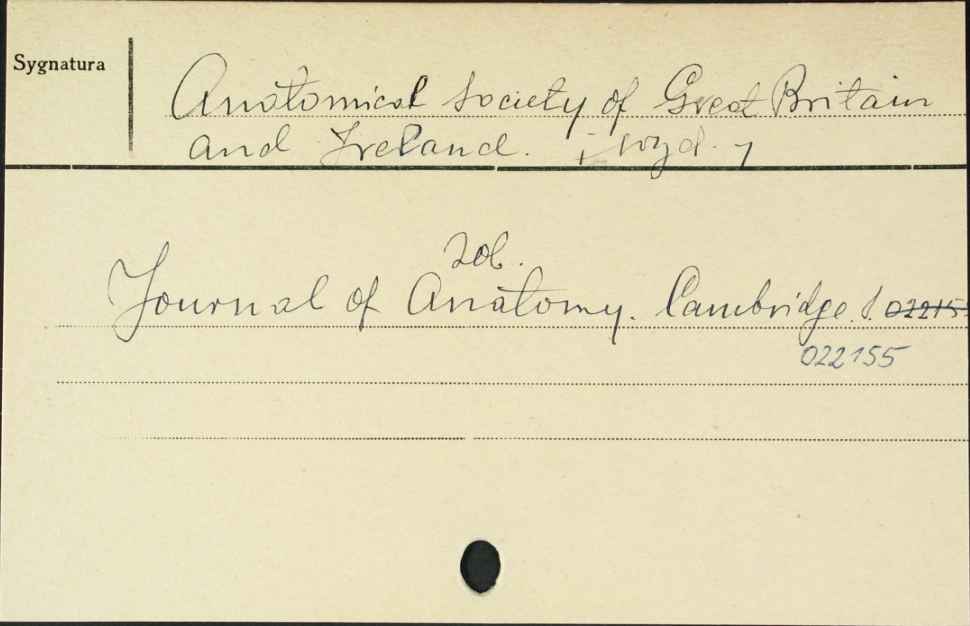 Sygnatura
Anatomical Society of Great Britain
and Ireland. [wyd.]
zob.
Journal of Anatomy. Cambridge. S. 02215
022155